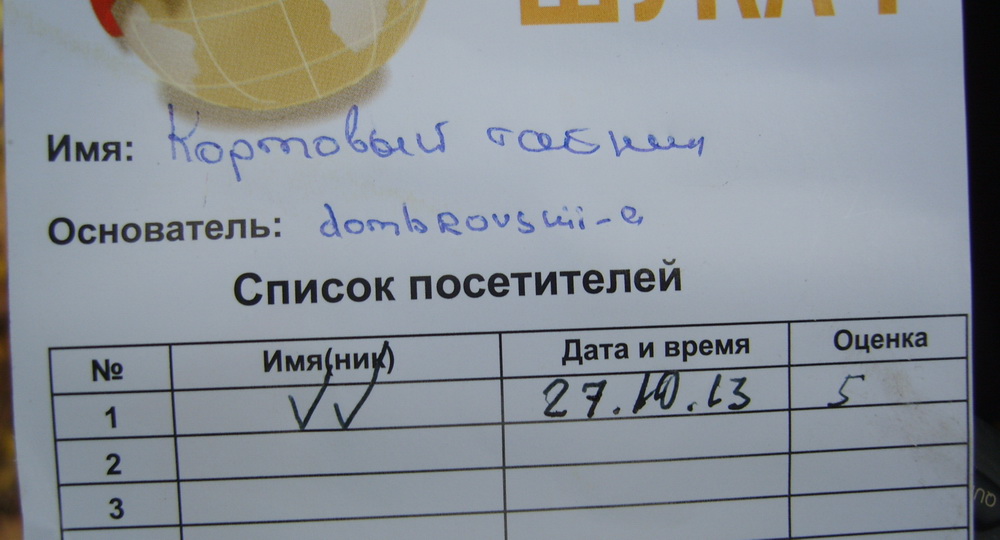 ШУКАЧ
Имя: Кортовый
Основатель: dombrovskii-a
Список посетителей
№ Имя(ник) Дата и время Оценка
1 VV 27.10.13 5
2
3